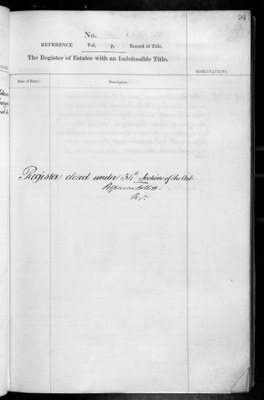 No.
REFERENCE Vol. p. Record of Title.
The Register of Estates with an Indefeasible Title.
OBSERVATIONS.
Date of Entry.
Description.
Register closed under 34th Section of the Act